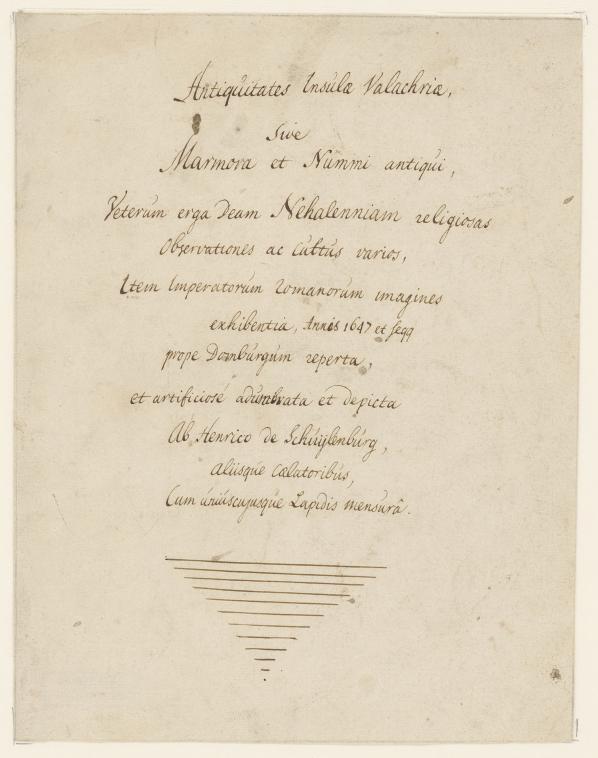 Antiquitates Insulæ Valachriæ,
Sive
Marmora et Nummi antiqui,
Veterum erga Deam Nehalenniam religiosas
Observationes ac Cultus varios,
Item Imperatorum Romanorum imagines
exhibentia, Annis 1647 et seqq
prope Domburgum reperta,
et artificiosé adumbrata et depicta
Ab Henrico de Schuijlenburg,
aliisque Cælatoribus,
Cum úniúscujusque Lapidis mensurâ.